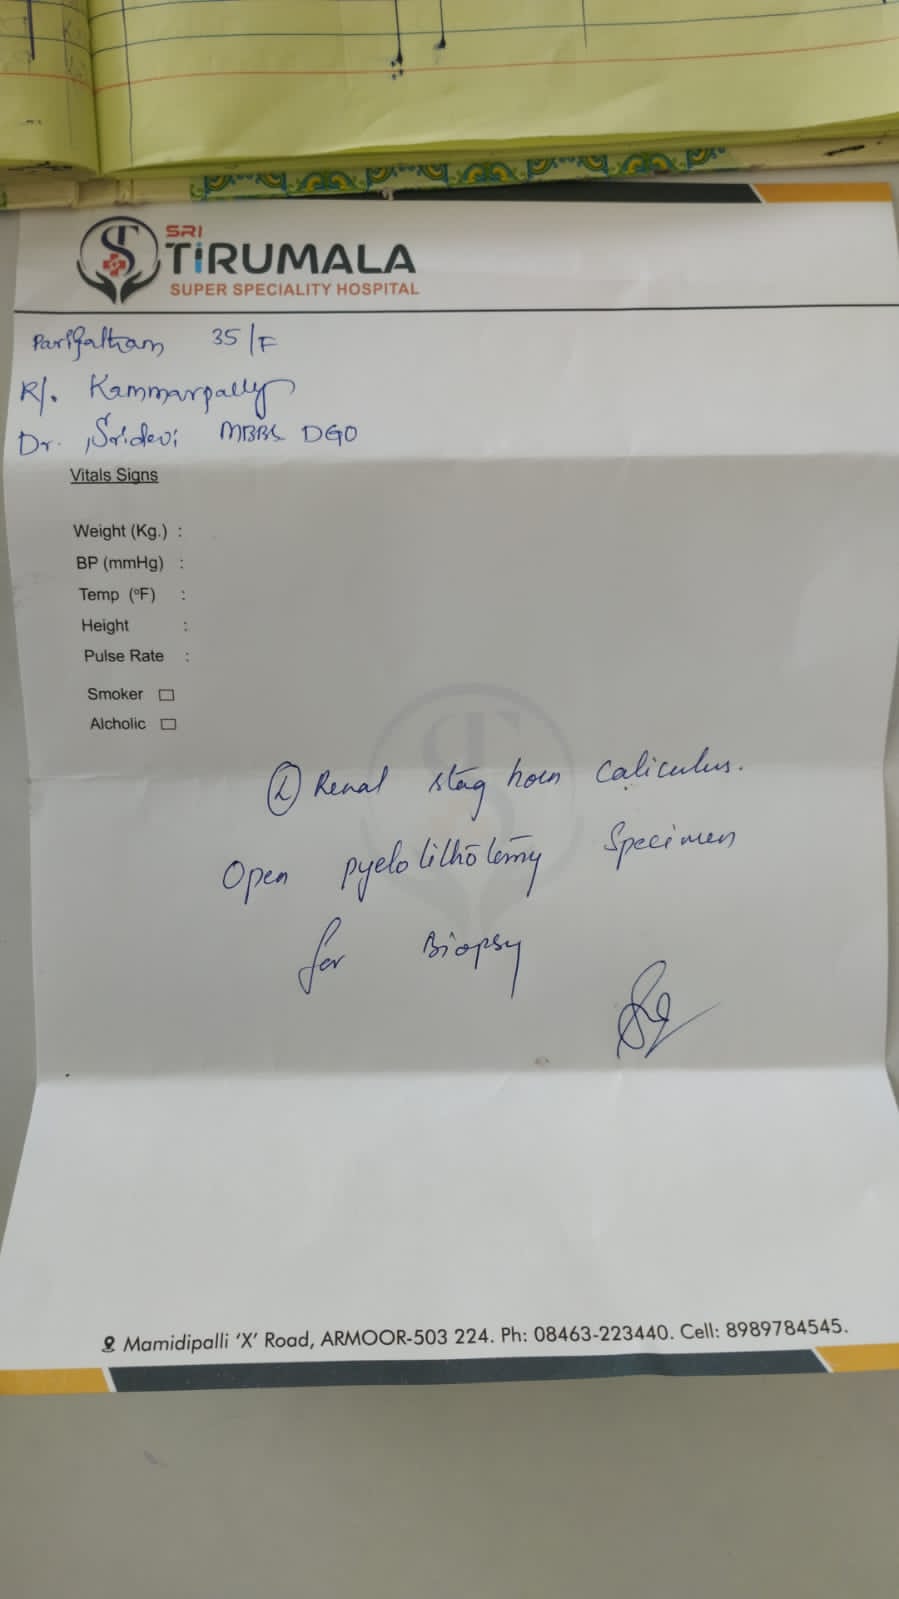 SRI
TiRUMALA
SUPER SPECIALITY HOSPITAL
Parijatham 35/F
R/. Kammarpally
Dr. Sridevi MBBS DGO
Vitals Signs
Weight (Kg.) :
BP (mmHg) :
Temp (ºF) :
Height :
Pulse Rate :
Smoker
Alcholic
Ⓛ Renal stag horn caliculus.
Open pyelolithotomy Specimen
for Biopsy
Mamidipalli 'X' Road, ARMOOR-503 224. Ph: 08463-223440. Cell: 8989784545.